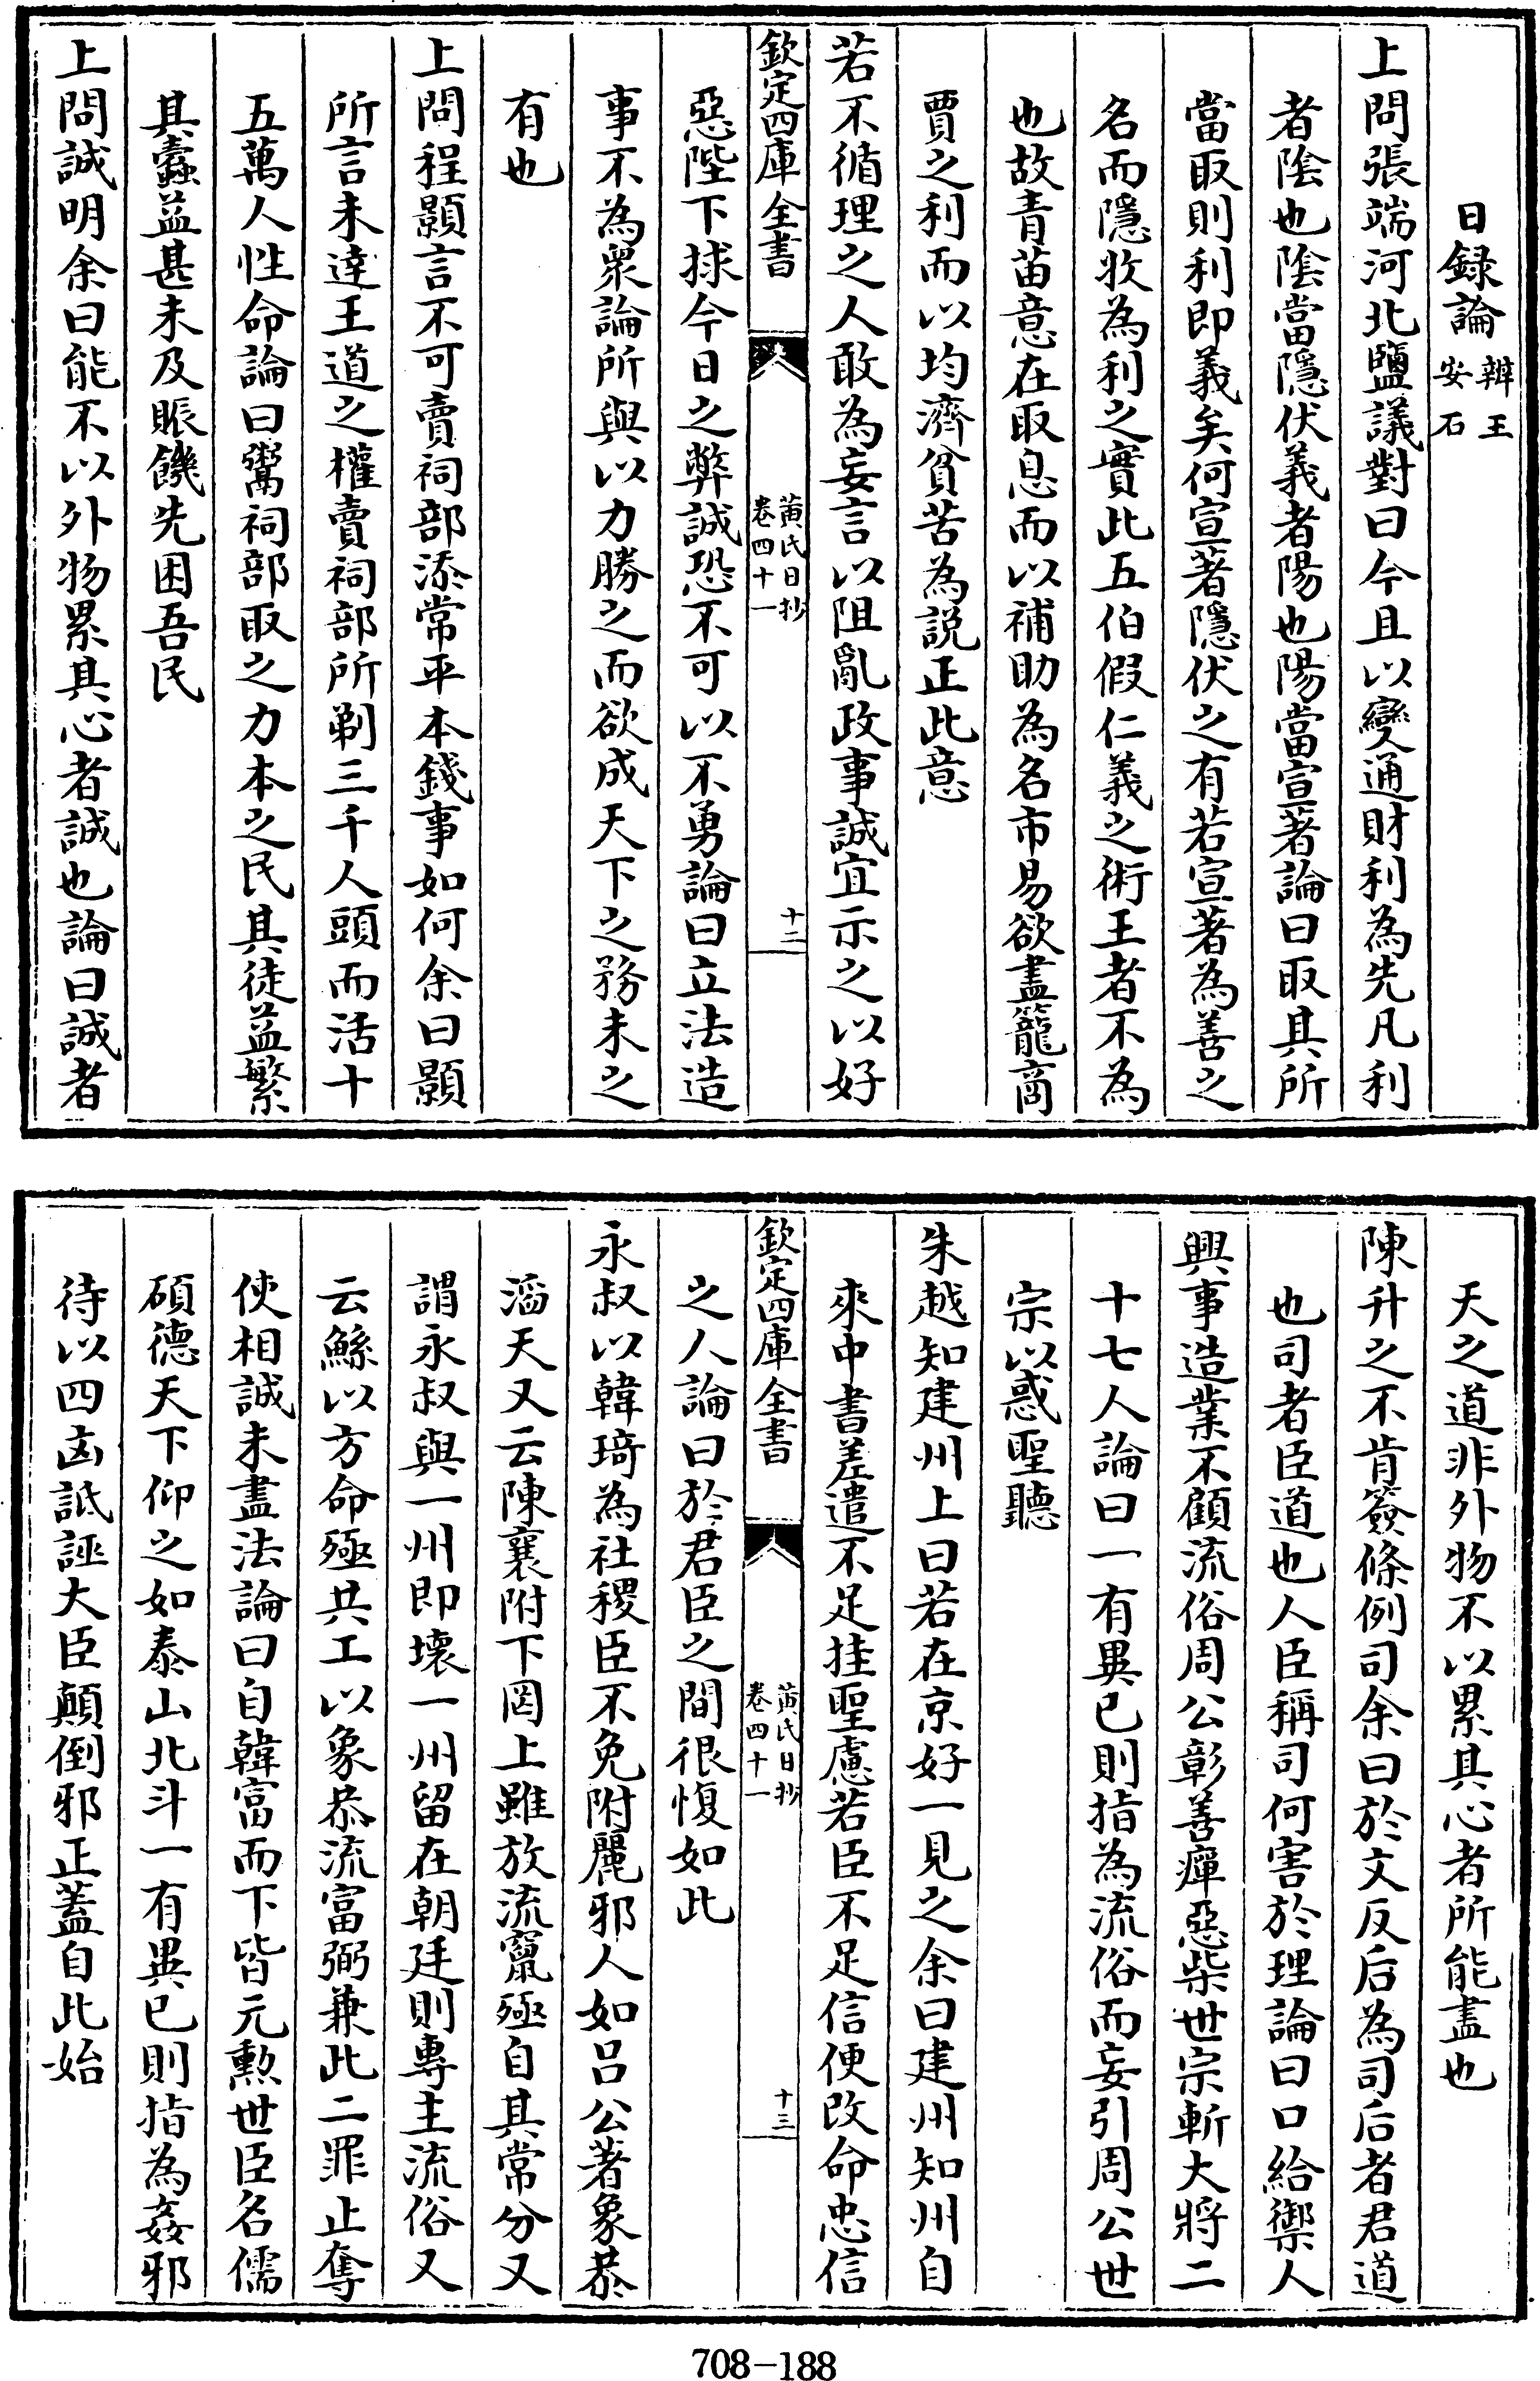 日録論辨王安石
上問張端河北鹽議對曰今且以變通財利為先凡利
者隂也隂當隠伏義者陽也陽當宣著論曰取其所
當取則利即義矣何宣著隠伏之有若宣著為善之
名而隠收為利之實此五伯假仁義之術王者不為
也故青苗意在取息而以補助為名市易欲盡籠商
賈之利而以均濟貧苦為説正此意
若不循理之人敢為妄言以阻亂政事誠宜示之以好
欽定四庫全書
黄氏日抄
卷四十一
十二
惡陛下捄今日之弊誠恐不可以不勇論曰立法造
事不為衆論所與以力勝之而欲成天下之務未之
有也
上問程顥言不可賣祠部添常平本錢事如何余曰顥
所言未達王道之權賣祠部所剃三千人頭而活十
五萬人性命論曰鬻祠部取之力本之民其徒益繁
其蠧益甚未及賑饑先困吾民
上問誠明余曰能不以外物累其心者誠也論曰誠者
天之道非外物不以累其心者所能盡也
陳升之不肯簽條例司余曰於文反后為司后者君道
也司者臣道也人臣稱司何害於理論曰口給禦人
興事造業不顧流俗周公彰善癉惡柴世宗斬大將二
十七人論曰一有異已則指為流俗而妄引周公世
宗以惑聖聽
朱越知建州上曰若在京好一見之余曰建州知州自
來中書差遣不足挂聖慮若臣不足信便改命忠信
欽定四庫全書
黄氏日抄
卷四十一
十三
之人論曰於君臣之間很愎如此
永叔以韓琦為社稷臣不免附麗邪人如呂公著象恭
滔天又云陳襄附下罔上雖放流竄殛自其常分又
謂永叔與一州即壞一州留在朝廷則專主流俗又
云鯀以方命殛共工以象恭流富弼兼此二罪止奪
使相誠未盡法論曰自韓富而下皆元勲世臣名儒
碩德天下仰之如泰山北斗一有異已則指為姦邪
待以四凶詆誣大臣顛倒邪正蓋自此始
708-188